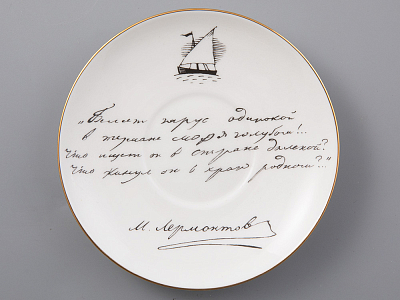 „Белеет парус одинокой
в тумане моря голубом!..
Что ищет он в стране далекой?
Что кинул он в краю родном?.."
М. Лермонтов